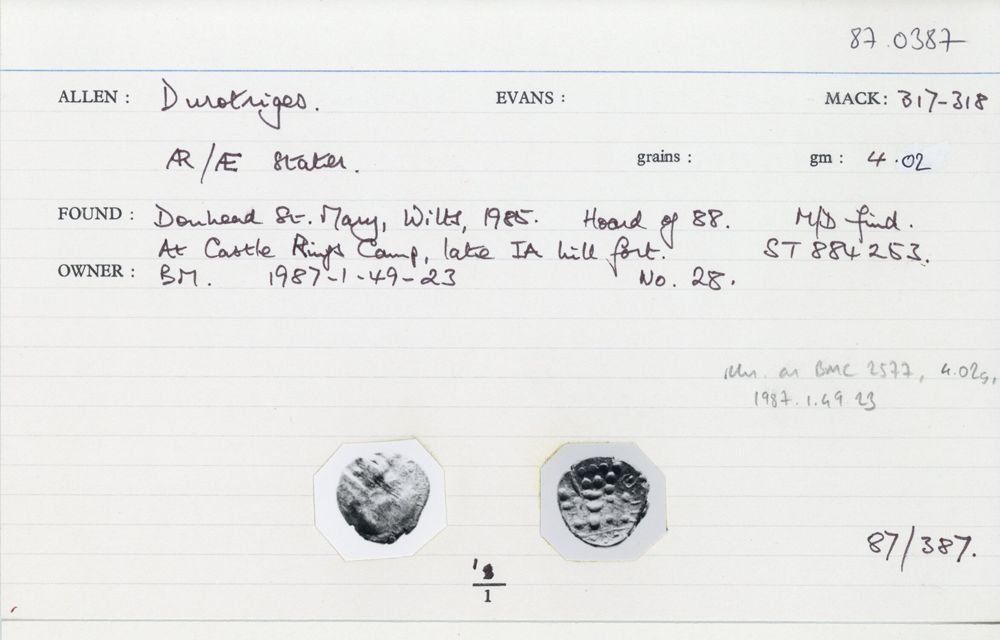 87.0387
ALLEN : Durotriges. EVANS : MACK: 317-318
AR/Æ Stater. grains : gm : 4.02
FOUND : Donhead St. Mary, Wilts, 1985. Hoard of 88. M/D find.
At Castle Rings Camp, late IA hill fort. ST 884253.
OWNER : BM. 1987-1-49-23 No. 28.
illus. as BMC 2577, 4.02g,
1987.1.49 23
87/387.
1